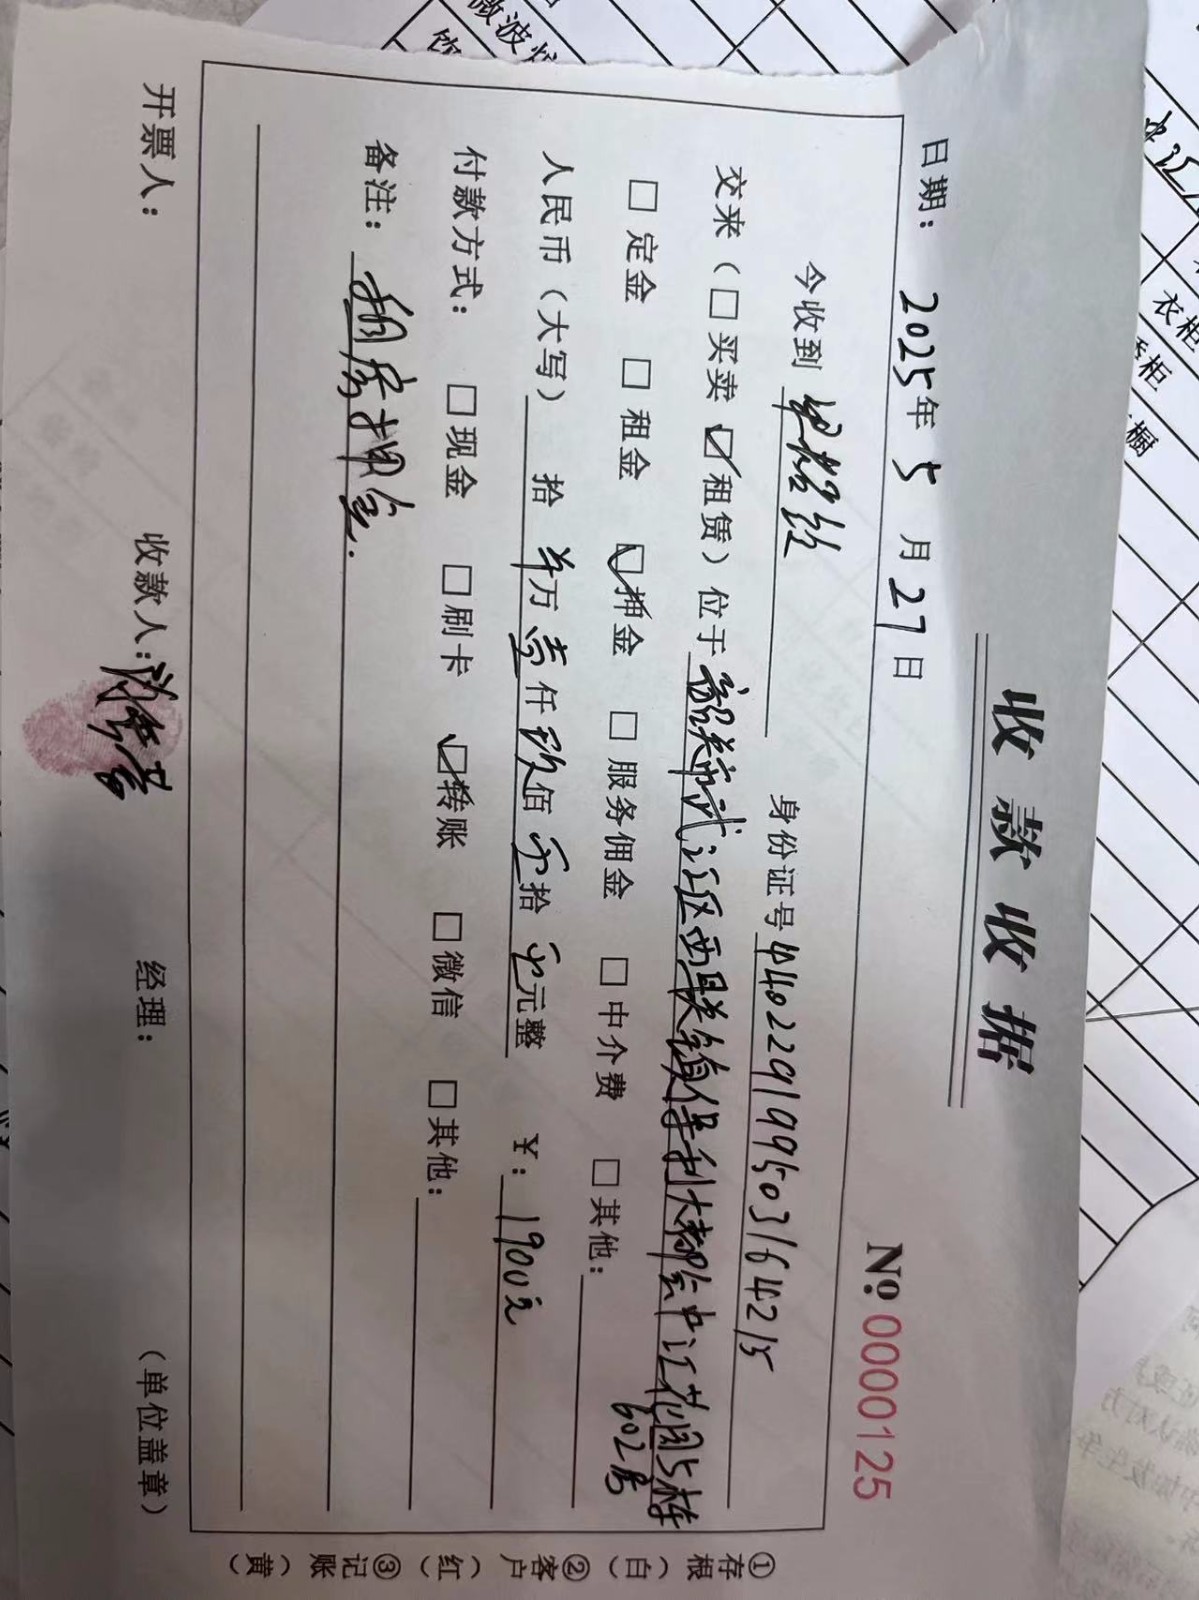 收款收据
No: 0000125
日期: 2025年 5 月 27日
今收到 身份证号 440229199503164215
交来(□买卖 ☑租赁)位于 韶关市武江区西联镇保利大都会中汇花园5栋
602房
□定金 □租金 ☑押金 □服务佣金 □中介费 □其他:
人民币(大写) 拾 万 壹仟 玖佰 零拾 零元整 ¥: 1900元
付款方式: □现金 □刷卡 ☑转账 □微信 □其他:
备注: 租房押金.
开票人: 收款人: 经理: (单位盖章)
①存根(白) ②客户(红) ③记账(黄)
微波炉
衣柜
柜
橱